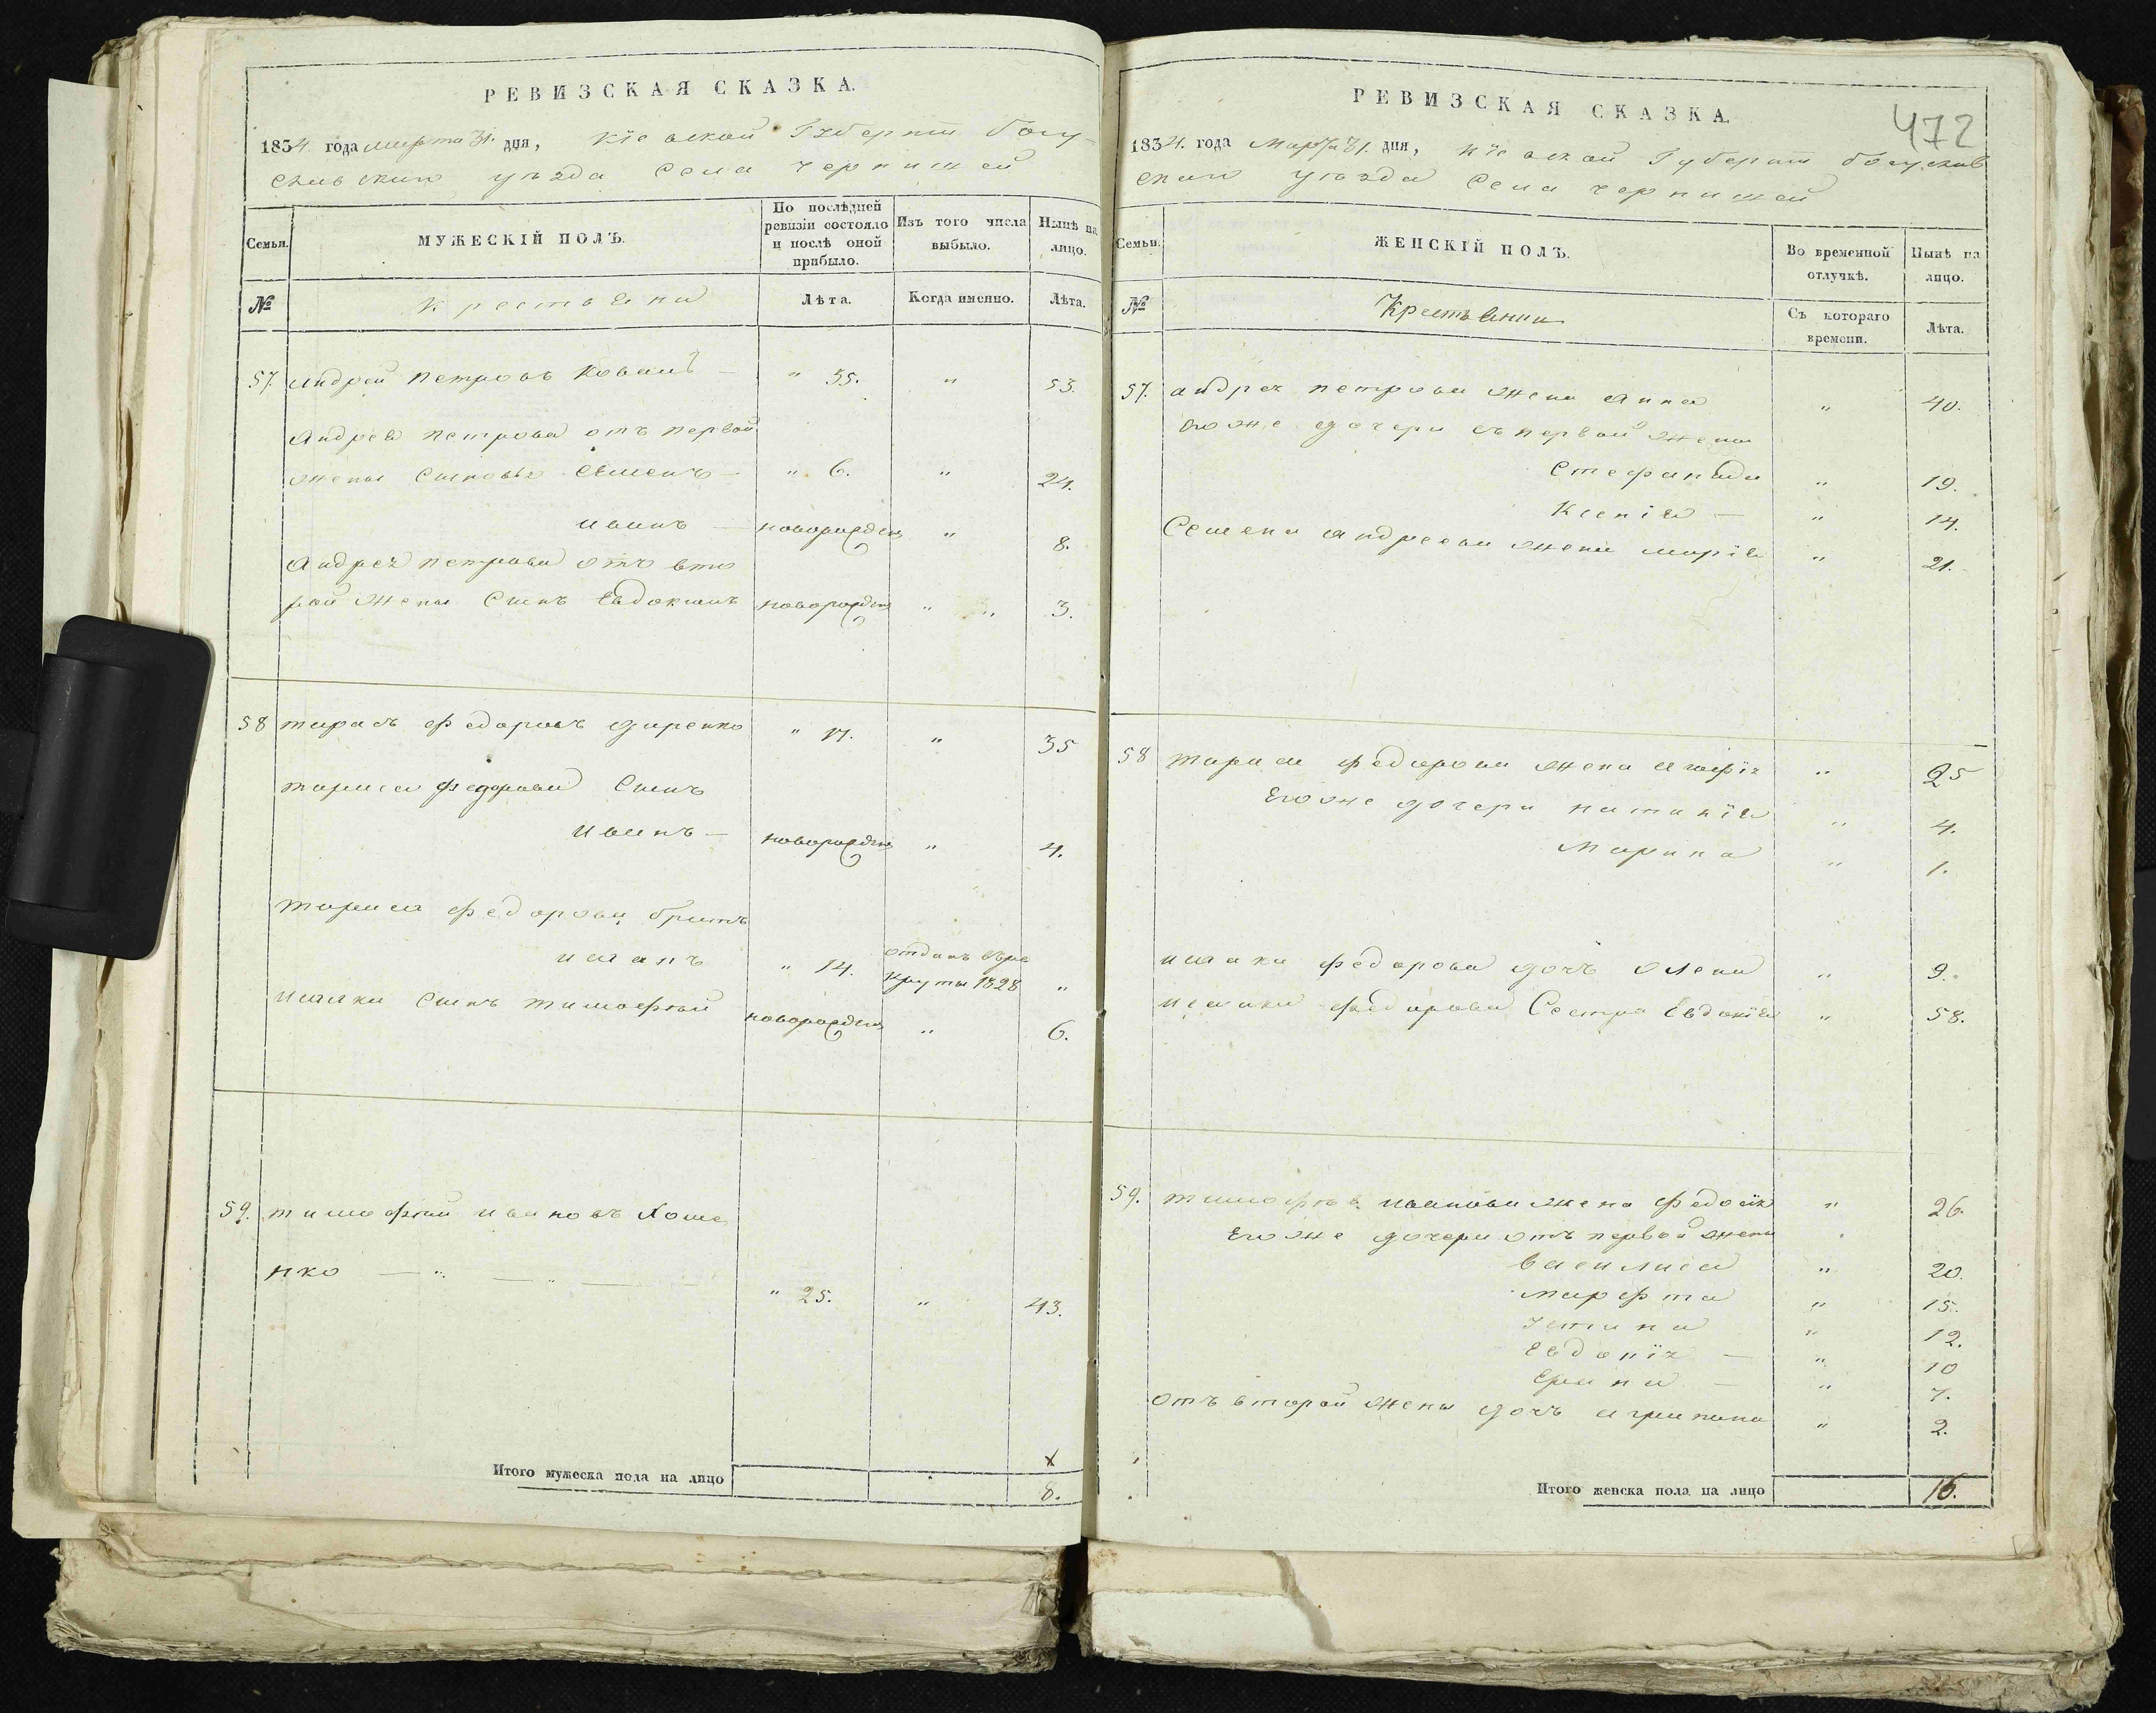 РЕВИЗСКАЯ СКАЗКА.
1834. года марта 31. дня, Кіевской Губерніи Богу-
славскаго уѣзда Села Чернишей
Семьи.
МУЖЕСКІЙ ПОЛЪ.
По послѣдней ревизіи состояло и послѣ оной прибыло.
Изъ того числа выбыло.
Нынѣ на лицо.
№
Крестьяни
Лѣта.
Когда именно.
Лѣта.
57. Андрей Петровъ Коваль — " 35. " 53.
Андрея Петрова отъ первой
жены Сыновья Семенъ — " 6. " 24.
Иванъ — новорожден " 8.
Андрея Петрова отъ вто
рой жены Сынъ Евдокимъ новорожден " " 3.
58 Тарасъ Федоровъ " 17. " 35
Тараса Федорова Сынъ
Иванъ — новорожден " 4.
Тараса Федорова братъ
Исаакъ " 14. отданъ въ ре
круты 1828 "
Исаака Сынъ Тимофѣй новорожден " 6.
59. Тимофѣй Ивановъ Хоме
нко — " — " — " 25. " 43.
х
Итого мужеска пола на лицо 8.
РЕВИЗСКАЯ СКАЗКА.
472
1834. года Марта 31. дня, Кіевской Губерніи Богуслав
скаго уѣзда Села Чернишей
Семьи.
ЖЕНСКІЙ ПОЛЪ.
Во временной отлучкѣ.
Нынѣ на лицо.
№
Крестьянки
Съ котораго времени.
Лѣта.
57. Андрея Петрова жена Анна " 40.
Его же дочери съ первой жены
Стефанида " 19.
Ксенія — " 14.
Семена Андреева жена Марія " 21.
58 Тараса Федорова жена Агафія " 25
Его же дочери Наталія " 4.
Марина " 1.
Исаака Федорова дочь Олена " 9.
Исаака Федорова Сестра Евдокія " 58.
59. Тимофѣя Иванова жена Федосія " 26.
Его же дочери отъ первой жены
Василиса " 20.
Марфта " 15.
Устина " 12.
Евдокія — " 10
Ирина — " 7.
Отъ второй жены дочь Агрипина " 2.
Итого женска пола на лицо 16.